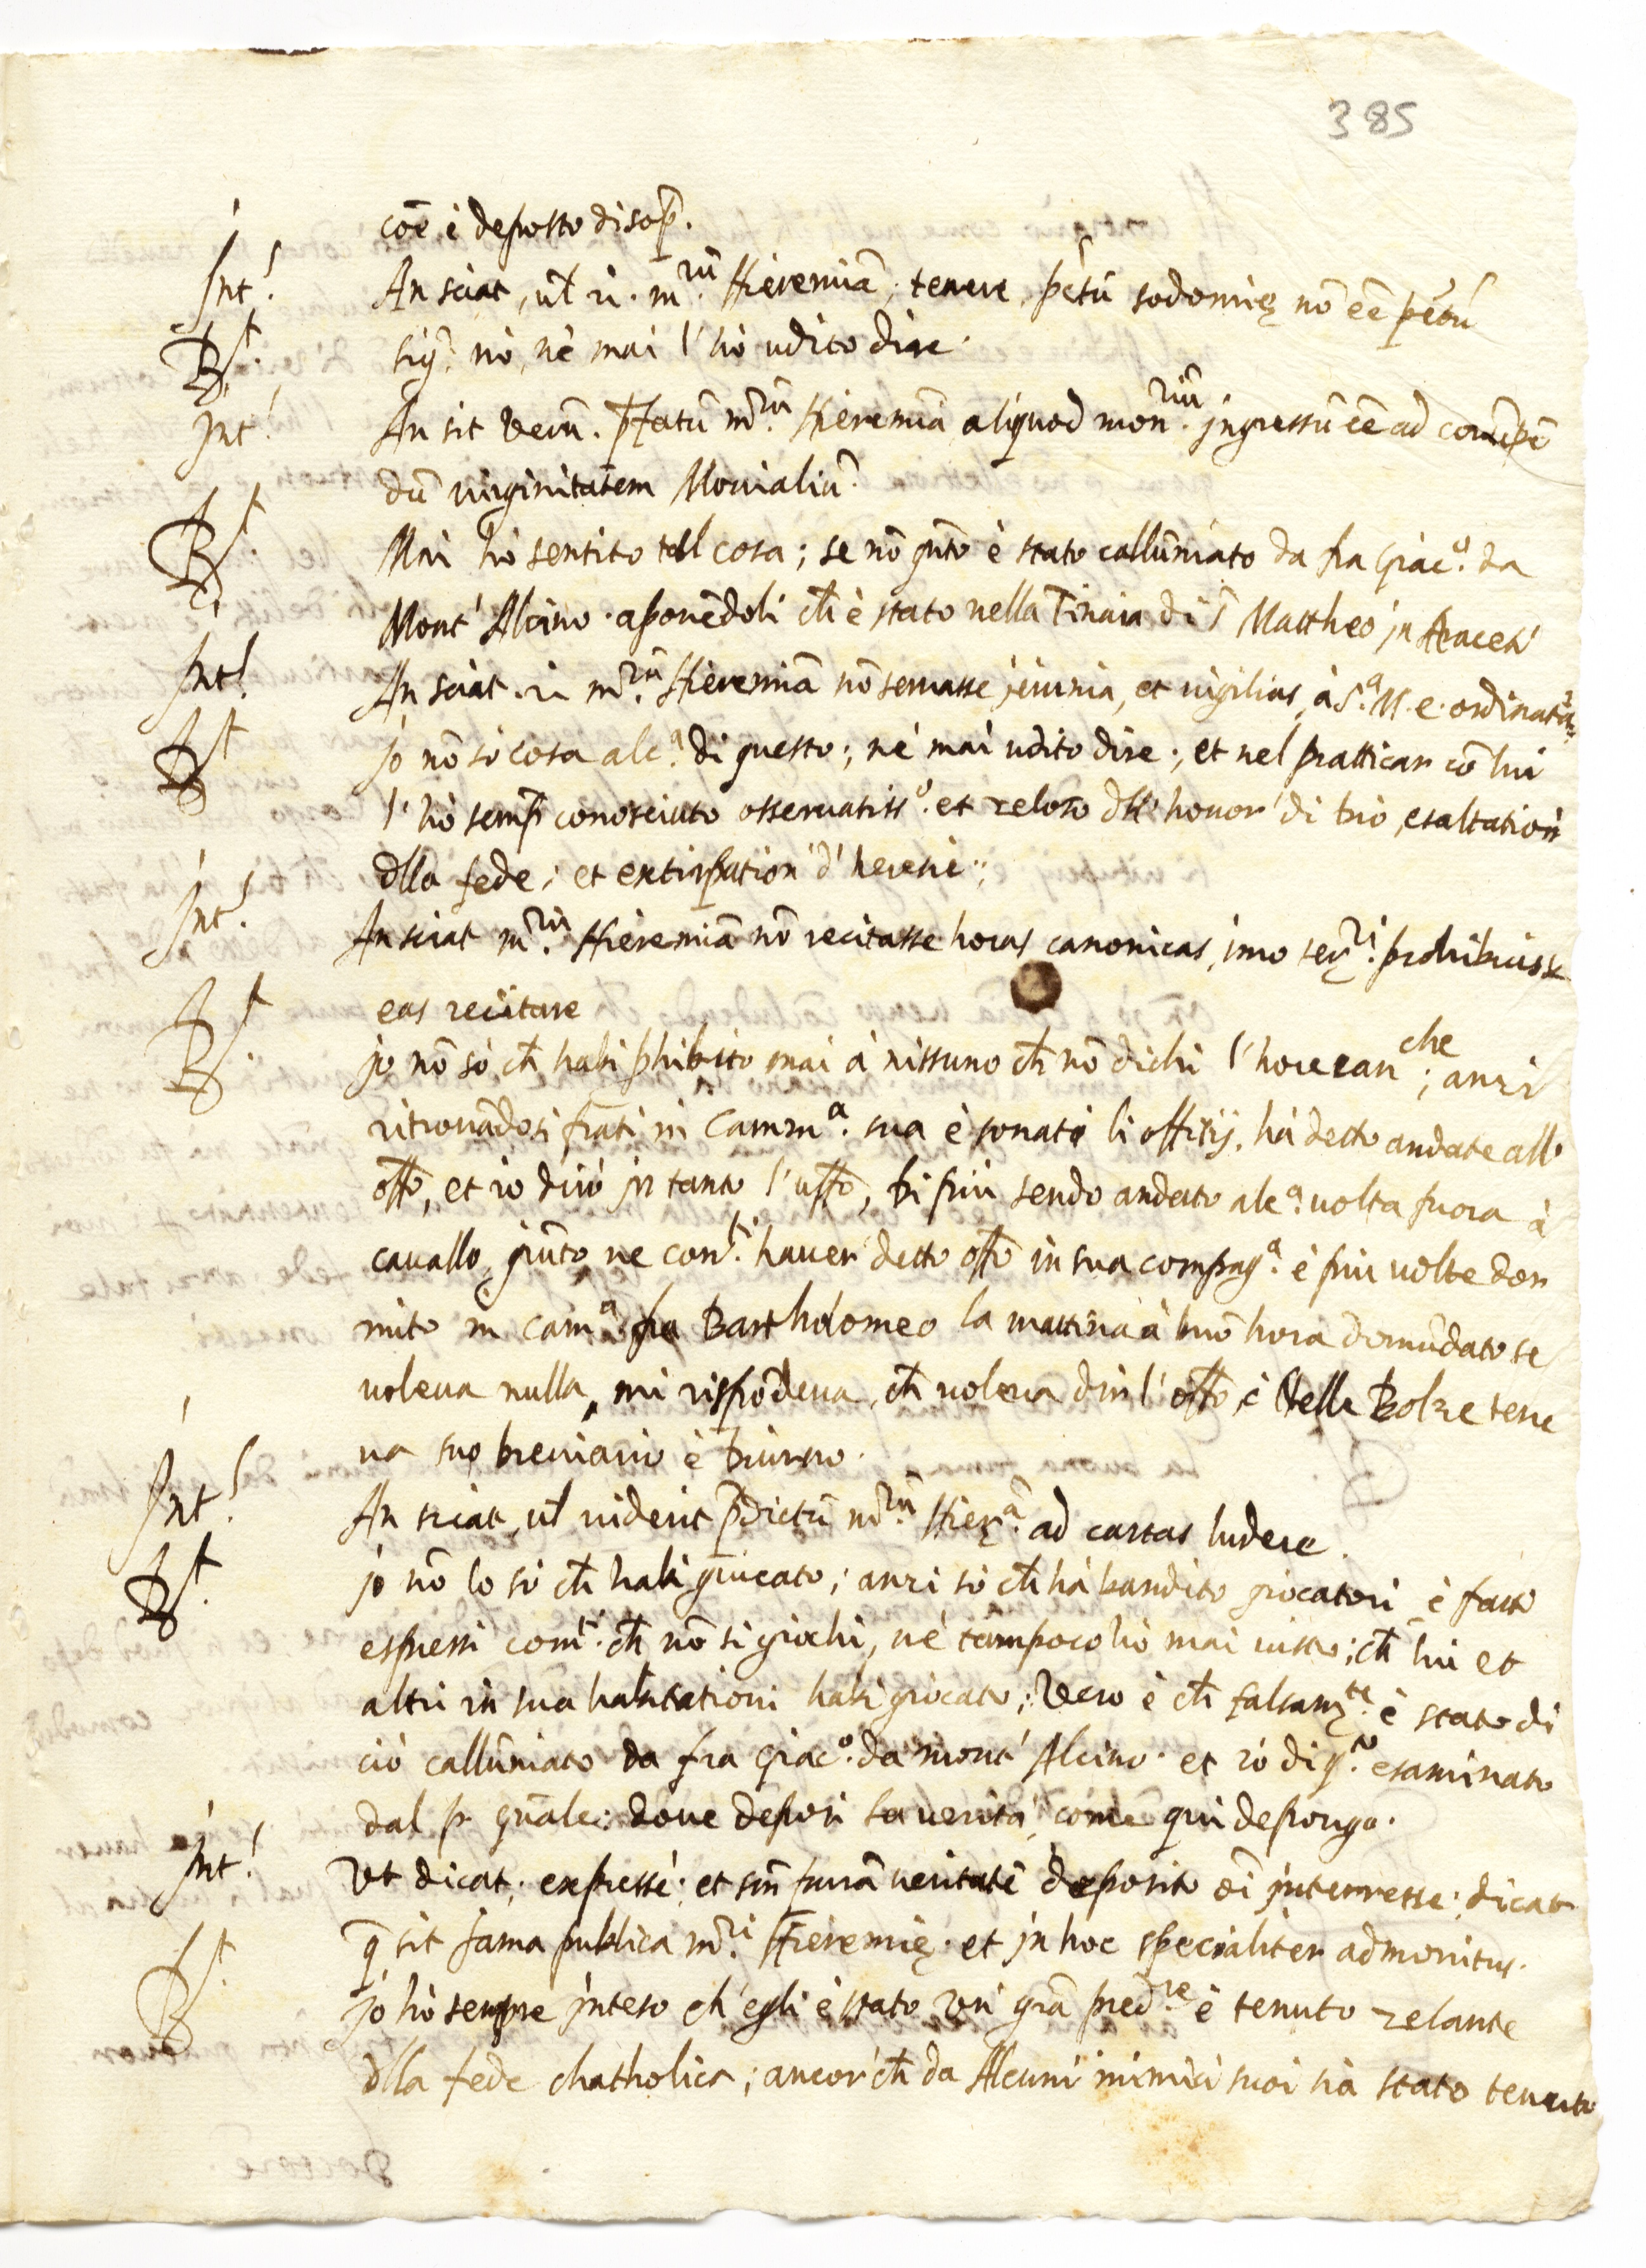 385
coē è deposto disop̄.
Int.! An sciat, ul' ir. m.rū Hieremiā, tenere, pctū sodomię nō eē pctū
Rt. sigr. nò, nè mai l'hò udito dire.
Int.! An sit verū. p̄fatū m.rū Hieremiā aliquod mon.riū ingressū eē ad corrūpē
dū virginitatem Monialiū.
Rt. Mai hò sentito tal cosa; se nō qnto è stato callūniato da fra Giac.o da
Mont' Alcino. aponēdoli ch̄ è stato nella Tinaia di S. Mattheo jn Araceli
Int! An sciat. m.rū Hieremiā nō servasse jeiunia, et vigilias, à S.a M. e. ordinatas
Rt jo nō sò cosa alc.a di questo; nè mai udito dire; et nel pratticar cō lui
l'hò semp̄ conosciuto osservatiss.o et zeloso dll' honor' di Dio, esaltation
dlla fede; et extirpation' d' heresie;
Int! An sciat m.rū Hieremiā nō recitasse horas canonicas, imo ser.ri prohibuisse
eas recitare
Rt. jo nō sò ch̄ habi phibito mai à nissuno ch̄ nō dichi l'hore can che; anzi
ritrovādosi frati in Camm.a sua è sonati li offitij, hà detto andate all'
offo, et io dirò jn tanto l'uffo, Di più sendo andato alc.a volta fuora à
cavallo, giūto ne con.ti haver' detto offo in sua compag.a è piu volte dor
mito in cam.a fra Bartholomeo la mattina à buō hora domādato se
voleva nulla, mi rispōdeva, ch̄ voleva dir l'offo, è Nelle Bolze tene
va suo breviario è Diurno.
Int! An sciat, ul' viderit p̄dictū m.rū Hier.ā ad cartas ludere.
Rt. jo nō lo sò ch̄ habi giucato; anzi sò ch̄ hà bandito giocatori è fatto
espressi com.ti ch̄ nō si giochi, nè tampoco hò mai visto; ch̄ lui et
altri in sua habitationi habi giocato; Vero è ch̄ falsam.te è stato di
ciò callūniato da fra Giac.o da mont' Alcino. et iò di q.to esaminato
dal p. gn̄ale: dove deposi la verità, come qui depongo.
Int! Vt dicat, expressè; et sm̄ purā veritatē deposito oī jnterresse; dicat
q̄ sit fama publica m.ri Hieremię. et jn hoc specialiter admonitus.
Rt. jo hò sempre jnteso ch' egli è stato un' grā pred.re è tenuto zelante
dlla fede chatholica; ancor' ch̄ da Alcuni inimici suoi sia stato tenuto